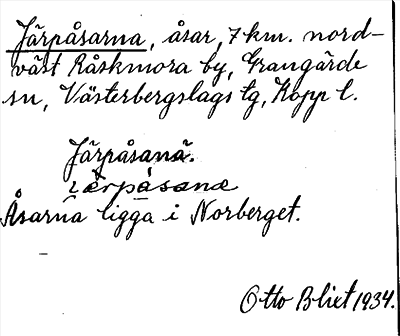 Järpåsarna, åsar, 7 km. nord-
väst Råskmora by, Grangärde
sn, Västerbergslags tg, Kopp l.
Järpåsanä.
ıærpåsanæ
Åsarna ligga i Norberget.
Otto Blixt 1934.